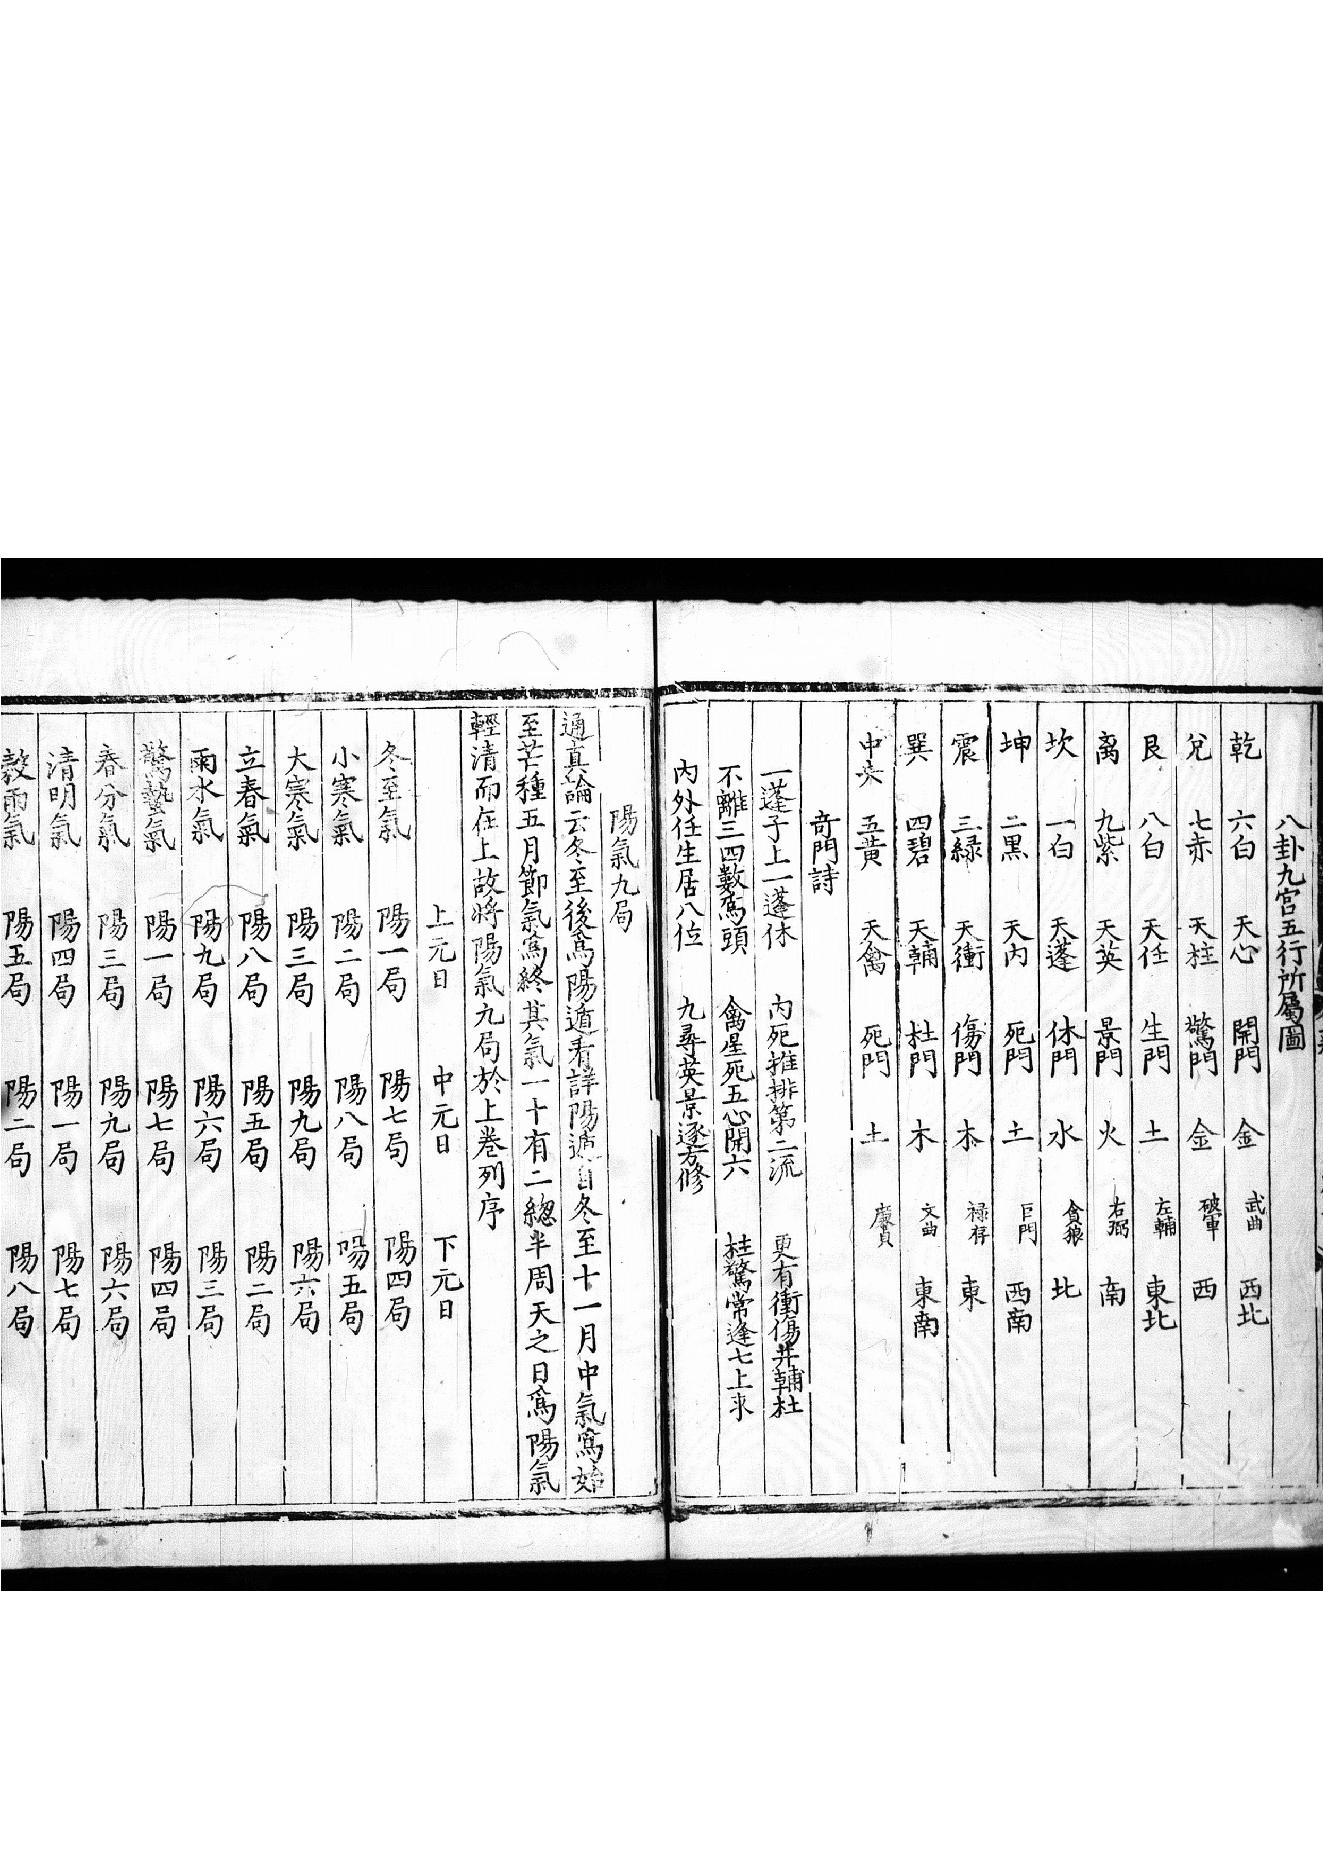 八卦九宮五行所屬圖
乾 六白 天心 開門 金 武曲 西北
兌 七赤 天柱 驚門 金 破軍 西
艮 八白 天任 生門 土 左輔 東北
离 九紫 天英 景門 火 右弼 南
坎 一白 天蓬 休門 水 貪狼 北
坤 二黑 天内 死門 土 巨門 西南
震 三緑 天衝 傷門 木 禄存 東
巽 四碧 天輔 杜門 木 文曲 東南
中央 五黃 天禽 死門 土 廉貞
奇門詩
一蓬子上一蓬休 内死推排第二流 更有衝傷并輔杜
不離三四數爲頭 禽星死五心開六 柱驚常逢七上求
内外任生居八位 九尋英景逐方修
陽氣九局
通真論云冬至後爲陽遁看詳陽遁自冬至十一月中氣爲始
至芒種五月節氣爲終其氣一十有二總半周天之日爲陽氣
輕清而在上故將陽氣九局於上卷列序
上元日 中元日 下元日
冬至氣 陽一局 陽七局 陽四局
小寒氣 陽二局 陽八局 陽五局
大寒氣 陽三局 陽九局 陽六局
立春氣 陽八局 陽五局 陽二局
雨水氣 陽九局 陽六局 陽三局
驚蟄氣 陽一局 陽七局 陽四局
春分氣 陽三局 陽九局 陽六局
清明氣 陽四局 陽一局 陽七局
穀雨氣 陽五局 陽二局 陽八局